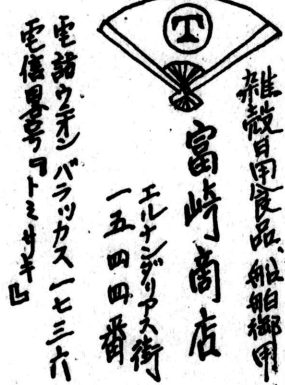 T
雑穀日用食品、船舶御用
富崎商店
エルナンダリアス街
一五四四番
電話ウニオンバラッカス一七三六
電信略号『トミサキ』